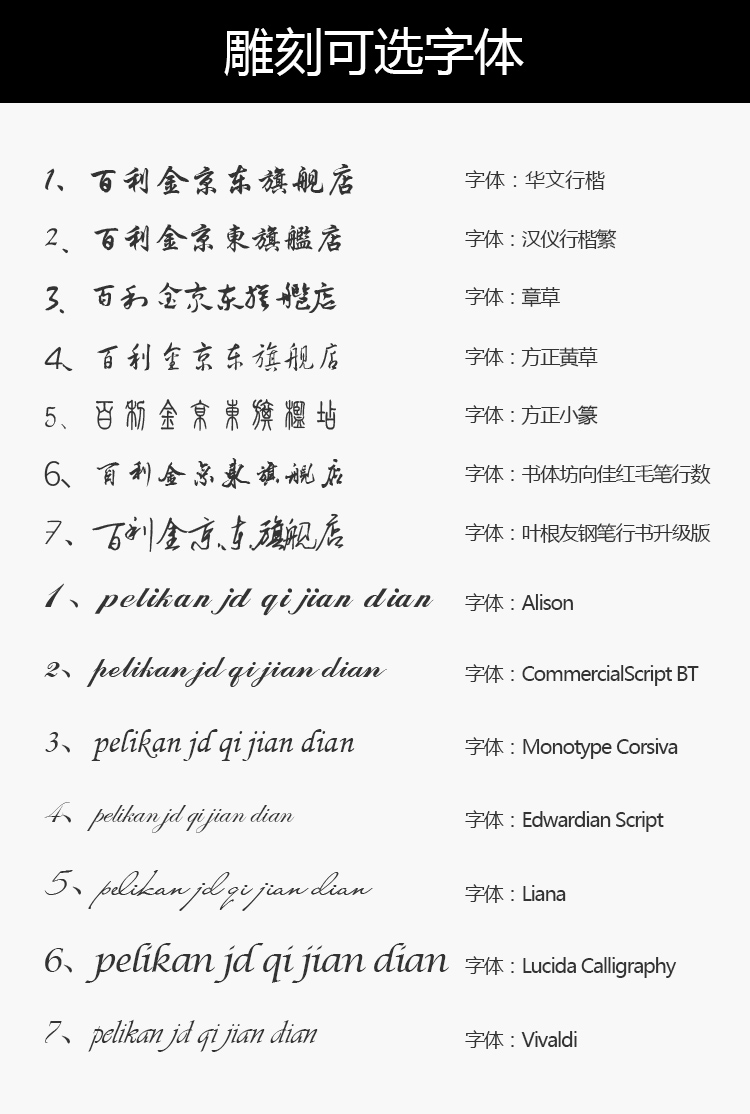 雕刻可选字体
1、百利金京东旗舰店 字体：华文行楷
2、百利金京東旗艦店 字体：汉仪行楷繁
3、百利金京东旗舰店 字体：章草
4、百利金京东旗舰店 字体：方正黄草
5、百利金京東旗艦店 字体：方正小篆
6、百利金京东旗舰店 字体：书体坊向佳红毛笔行数
7、百利金京东旗舰店 字体：叶根友钢笔行书升级版
1、pelikan jd qi jian dian 字体：Alison
2、pelikan jd qi jian dian 字体：CommercialScript BT
3、pelikan jd qi jian dian 字体：Monotype Corsiva
4、pelikan jd qi jian dian 字体：Edwardian Script
5、pelikan jd qi jian dian 字体：Liana
6、pelikan jd qi jian dian 字体：Lucida Calligraphy
7、pelikan jd qi jian dian 字体：Vivaldi